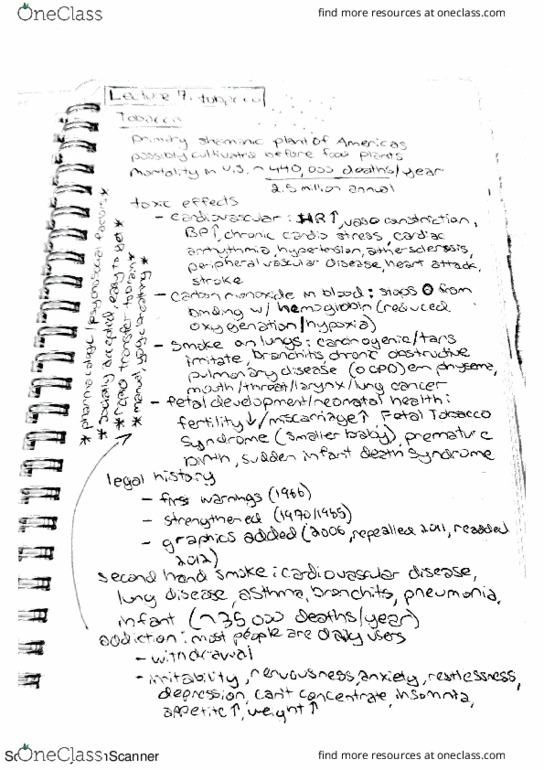 OneClass
find more resources at oneclass.com
Lecture 7: tobacco
Tobacco
primary shamanic plant of Americas
possibly cultivated before food plants
Mortality in U.S. ~ 440,000 deaths/year
2.5 million annual
toxic effects
- cardiovascular: HR↑, vaso constriction,
BP↑, chronic cardio stress, cardiac
arrhythmia, hypertension, atherosclerosis,
peripheral vascular disease, heart attack,
stroke
- carbon monoxide in blood: stops O from
binding w/ hemoglobin (reduced
oxygenation/hypoxia)
- smoke on lungs: carcinogenic/tars
irritate, bronchitis, chronic obstructive
pulmonary disease (OCPD) emphyseme,
mouth/throat/larynx/lung cancer
- fetal development/neonatal health:
fertility↓/miscarriage↑ Fetal Tobacco
Syndrome (smaller baby), premature
birth, sudden infant death syndrome
* pharmacologic/psychosocial factors *
* socially accepted, easy to get *
* rapid transfer to brain *
* manual, oral
legal history
- first warnings (1966)
- strengthened (1970/1985)
- graphics added (2006, repealled 2011, readded
2012)
second hand smoke: cardiovascular disease,
lung disease, asthma, bronchits, pneumonia,
infant (~35 000 deaths/year)
addiction: most people are daily users
- withdrawal
- irritability, nervousness, anxiety, restlessness,
depression, can't concentrate, insomnia,
appetite↑, weight↑
OneClass
Scanner
find more resources at oneclass.com